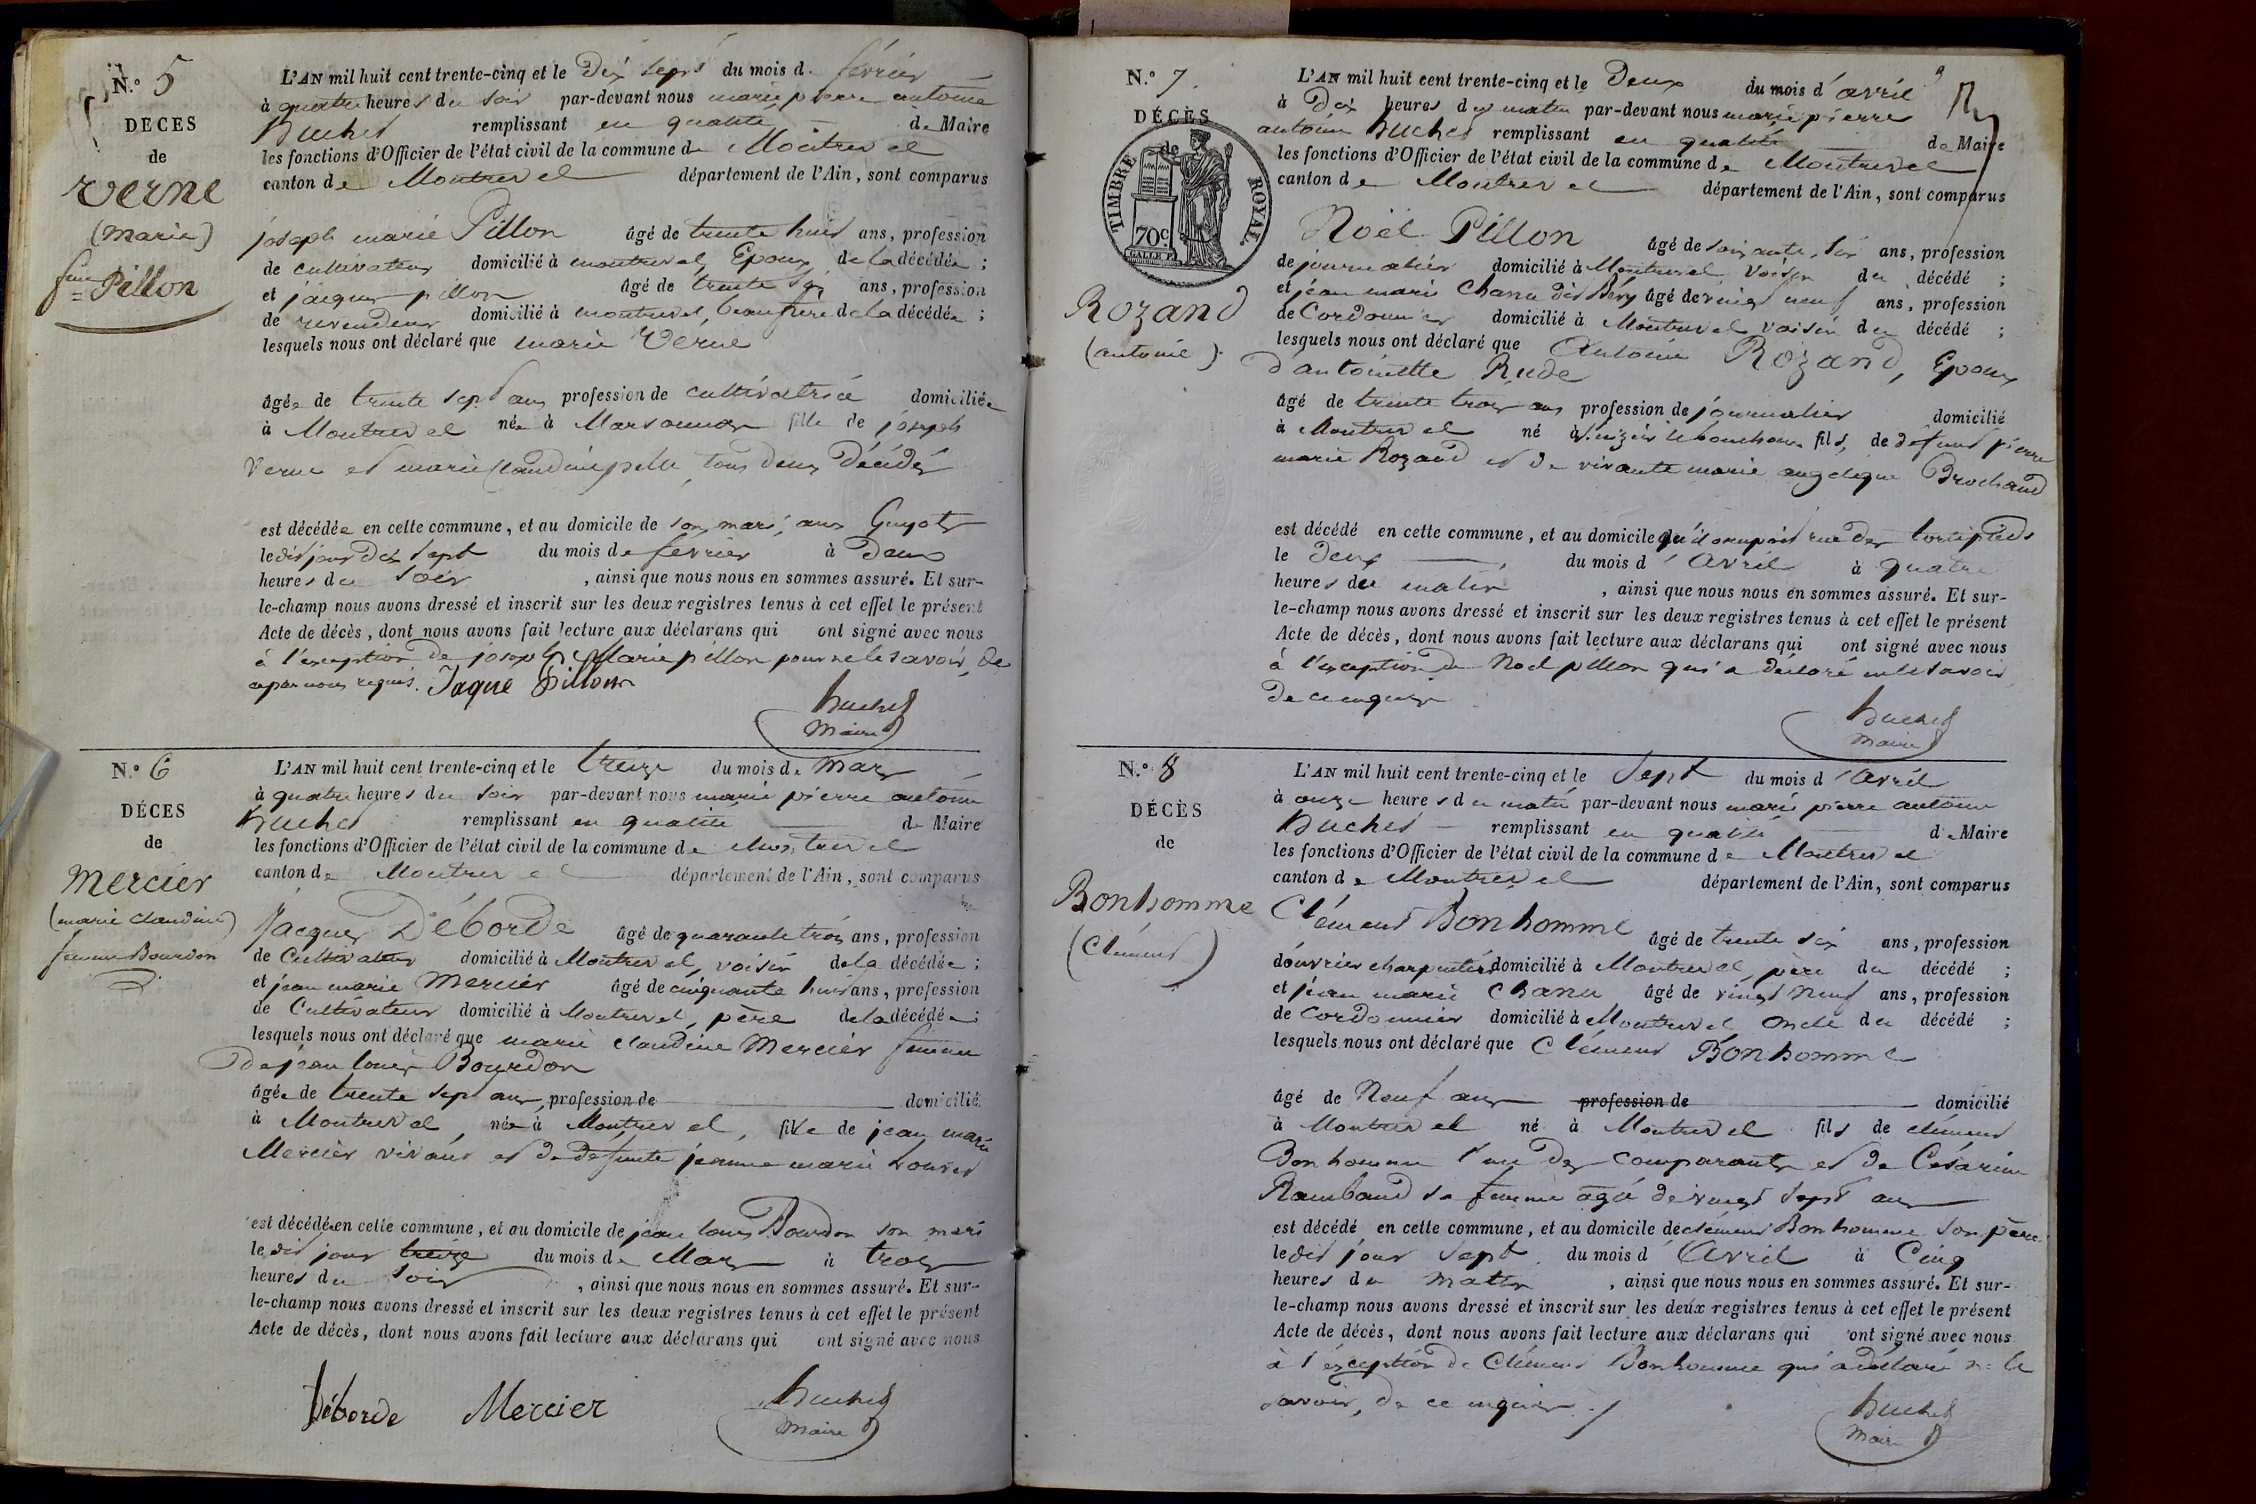 N.º 5
DÉCÈS
de
Verne
(marie)
fme Pillon
L'AN mil huit cent trente-cinq et le Dix Sept du mois de février
à quatre heures du soir par-devant nous marie pierre antoine
Huchet remplissant en qualité de Maire
les fonctions d'Officier de l'état civil de la commune de Montrevel
canton de Montrevel département de l'Ain, sont comparus
joseph marie Pillon âgé de trente huit ans, profession
de cultivateur domicilié à montrevel, Epoux de la décédée ;
et jacques pillon âgé de trente six ans, profession
de revendeur domicilié à montrevel, beaufrere de la décédée ;
lesquels nous ont déclaré que marie Verne
âgée de trente sept ans profession de cultivatrice domiciliée
à Montrevel née à Marsonnas fille de joseph
Verne et marie Claudine pelle, tous deux Décédés
est décédée en cette commune, et au domicile de son mari, aux Guyots
le dit jour dix sept du mois de fevrier à Deux
heures du Soir , ainsi que nous nous en sommes assuré. Et sur-
le-champ nous avons dressé et inscrit sur les deux registres tenus à cet effet le présent
Acte de décès, dont nous avons fait lecture aux déclarans qui ont signé avec nous
à l'exception de joseph Marie pillon pour ne le savoir, de
ce par nous requis. Jaque Pillon
Huchet
Maire
N.º 6
DÉCÈS
de
Mercier
(marie claudine)
femme Bourdon
L'AN mil huit cent trente-cinq et le treize du mois de Mars
à quatre heures du soir par-devant nous marie pierre antoine
Huchet remplissant en qualité de Maire
les fonctions d'Officier de l'état civil de la commune de Montrevel
canton de Montrevel département de l'Ain, sont comparus
Jacques Déborde âgé de quarante trois ans, profession
de Cultivateur domicilié à Montrevel, voisin de la décédée ;
et jean marie Mercier âgé de cinquante huit ans, profession
de Cultivateur domicilié à Montrevel, père de la décédée ;
lesquels nous ont déclaré que marie claudine Mercier femme
de jean louis Bourdon
âgée de trente sept ans, profession de domicilié
à Montrevel, née à Montrevel, fille de jean marie
Mercier vivant et de défunte jeanne marie
est décédée en cette commune, et au domicile de jean louis Bourdon son mari
le dit jour treize du mois de Mars à trois
heures du Soir , ainsi que nous nous en sommes assuré. Et sur-
le-champ nous avons dressé et inscrit sur les deux registres tenus à cet effet le présent
Acte de décès, dont nous avons fait lecture aux déclarans qui ont signé avec nous
Déborde Mercier Huchet
Maire
N.º 7
DÉCÈS
de
TIMBRE ROYAL
70c
Rozand
(antoine)
L'AN mil huit cent trente-cinq et le Deux du mois d'avril
à Dix heures du matin par-devant nous marie pierre
antoine Huchet remplissant en qualité de Maire
les fonctions d'Officier de l'état civil de la commune de Montrevel
canton de Montrevel département de l'Ain, sont comparus
Noël Pillon âgé de soixante six ans, profession
de journalier domicilié à Montrevel voisin du décédé ;
et jean marie Chanu dit Bery âgé de vingt neuf ans, profession
de Cordonnier domicilié à Montrevel voisin du décédé ;
lesquels nous ont déclaré que Antoine Rozand, Epoux
d'antoinette Rude
âgé de trente trois ans profession de journalier domicilié
à Montrevel né à St nizier le bouchoux fils de défunt pierre
marie Rozand et de vivante marie angelique Brochand
est décédé en cette commune, et au domicile qu'il occupait rue des
le deux du mois d'Avril à quatre
heures du matin , ainsi que nous nous en sommes assuré. Et sur-
le-champ nous avons dressé et inscrit sur les deux registres tenus à cet effet le présent
Acte de décès, dont nous avons fait lecture aux déclarans qui ont signé avec nous
à l'exception de Noel pillon qui a déclaré ne le savoir
de ce enquis
Huchet
Maire
N.º 8
DÉCÈS
de
Bonhomme
(Clément)
L'AN mil huit cent trente-cinq et le Sept du mois d'Avril
à onze heures du matin par-devant nous marie pierre antoine
Huchet remplissant en qualité de Maire
les fonctions d'Officier de l'état civil de la commune de Montrevel
canton de Montrevel département de l'Ain, sont comparus
Clément Bonhomme âgé de trente six ans, profession
d'ouvrier charpentier domicilié à Montrevel, père du décédé ;
et jean marie Chanu âgé de vingt neuf ans, profession
de Cordonnier domicilié à Montrevel oncle du décédé ;
lesquels nous ont déclaré que Clément Bonhomme
âgé de Neuf ans profession de domicilié
à Montrevel né à Montrevel fils de clément
Bonhomme l'un des comparants et de Césarine
Rambaud sa femme agé de vingt sept ans
est décédé en cette commune, et au domicile de clément Bonhomme son père
le dit jour sept du mois d'Avril à Cinq
heures du matin , ainsi que nous nous en sommes assuré. Et sur-
le-champ nous avons dressé et inscrit sur les deux registres tenus à cet effet le présent
Acte de décès, dont nous avons fait lecture aux déclarans qui ont signé avec nous
à l'exception de Clément Bonhomme qui a déclaré ne le
savoir, de ce enquis
Huchet
Maire